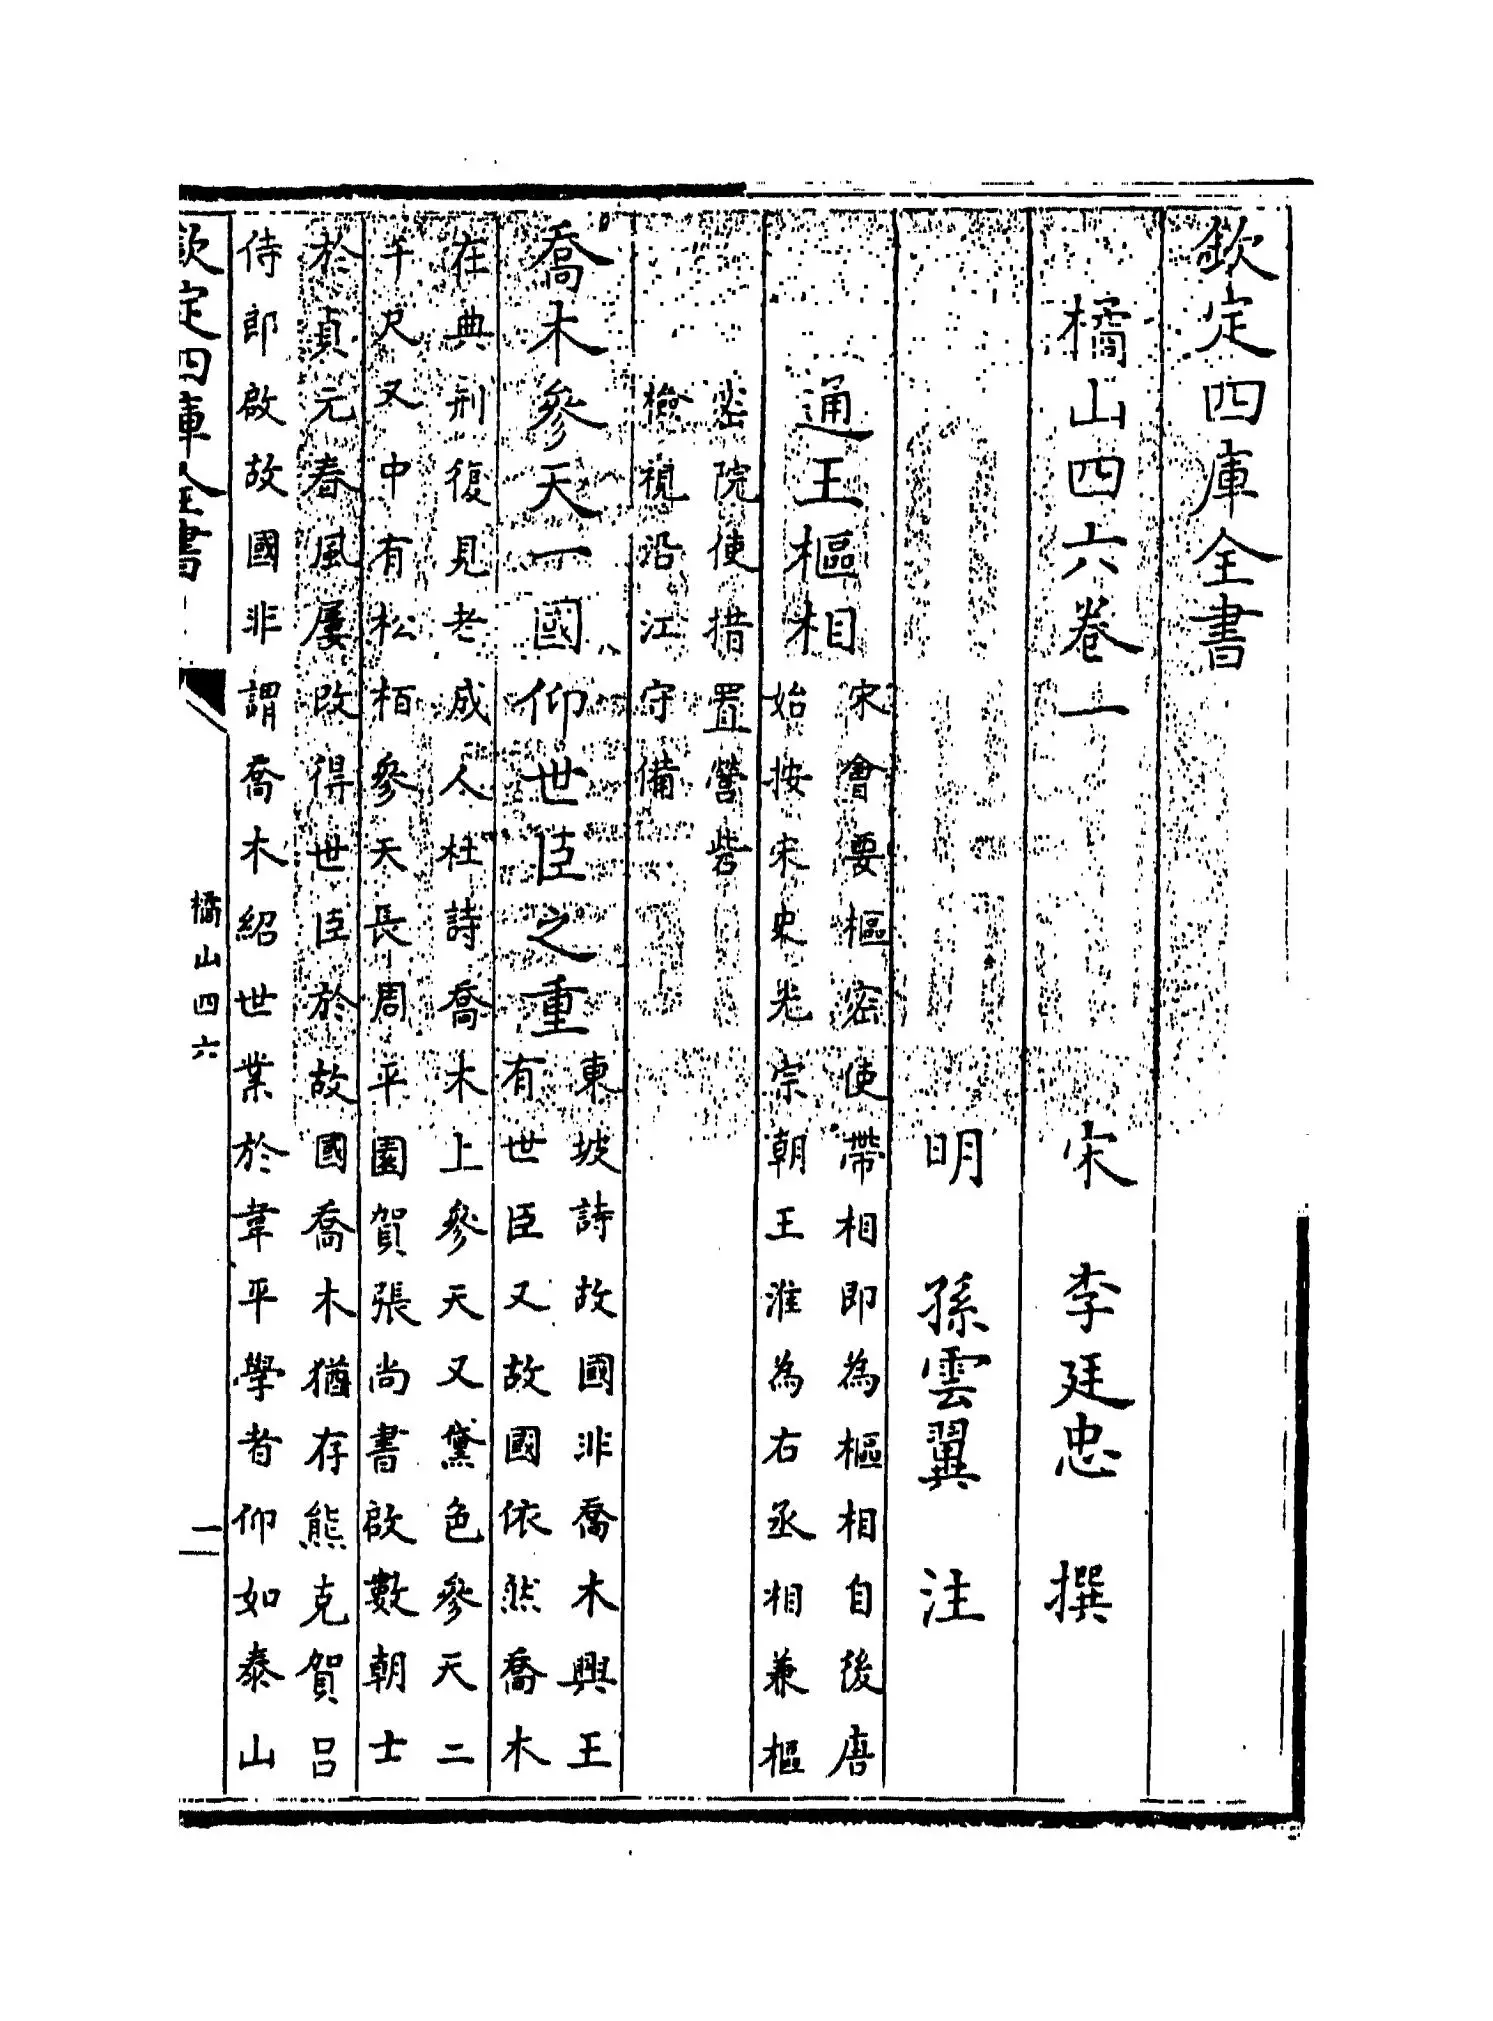 欽定四庫全書
橘山四六卷一
宋 李廷忠 撰
明 孫雲翼 注
通王樞相
宋會要樞密使帶相即為樞相自後唐
始按宋史光宗朝王淮為右丞相兼樞
密院使措置營砦
檢視沿江守備
喬木參天一國仰世臣之重
東坡詩故國非喬木興王
有世臣又故國依然喬木
在典刑復見老成人杜詩喬木上參天又黛色參天二
千尺又中有松栢參天長周平園賀張尚書啟數朝士
於貞元春風屢改得世臣於故國喬木猶存熊克賀吕
侍郎啟故國非謂喬木紹世業於韋平學者仰如泰山
欽定四庫全書
橘山四六
一